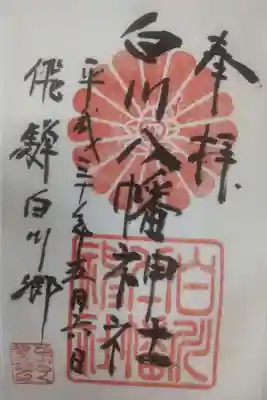 奉拝
白川八幡神社
平成三十年五月六日
飛騨白川郷
白川八幡神社